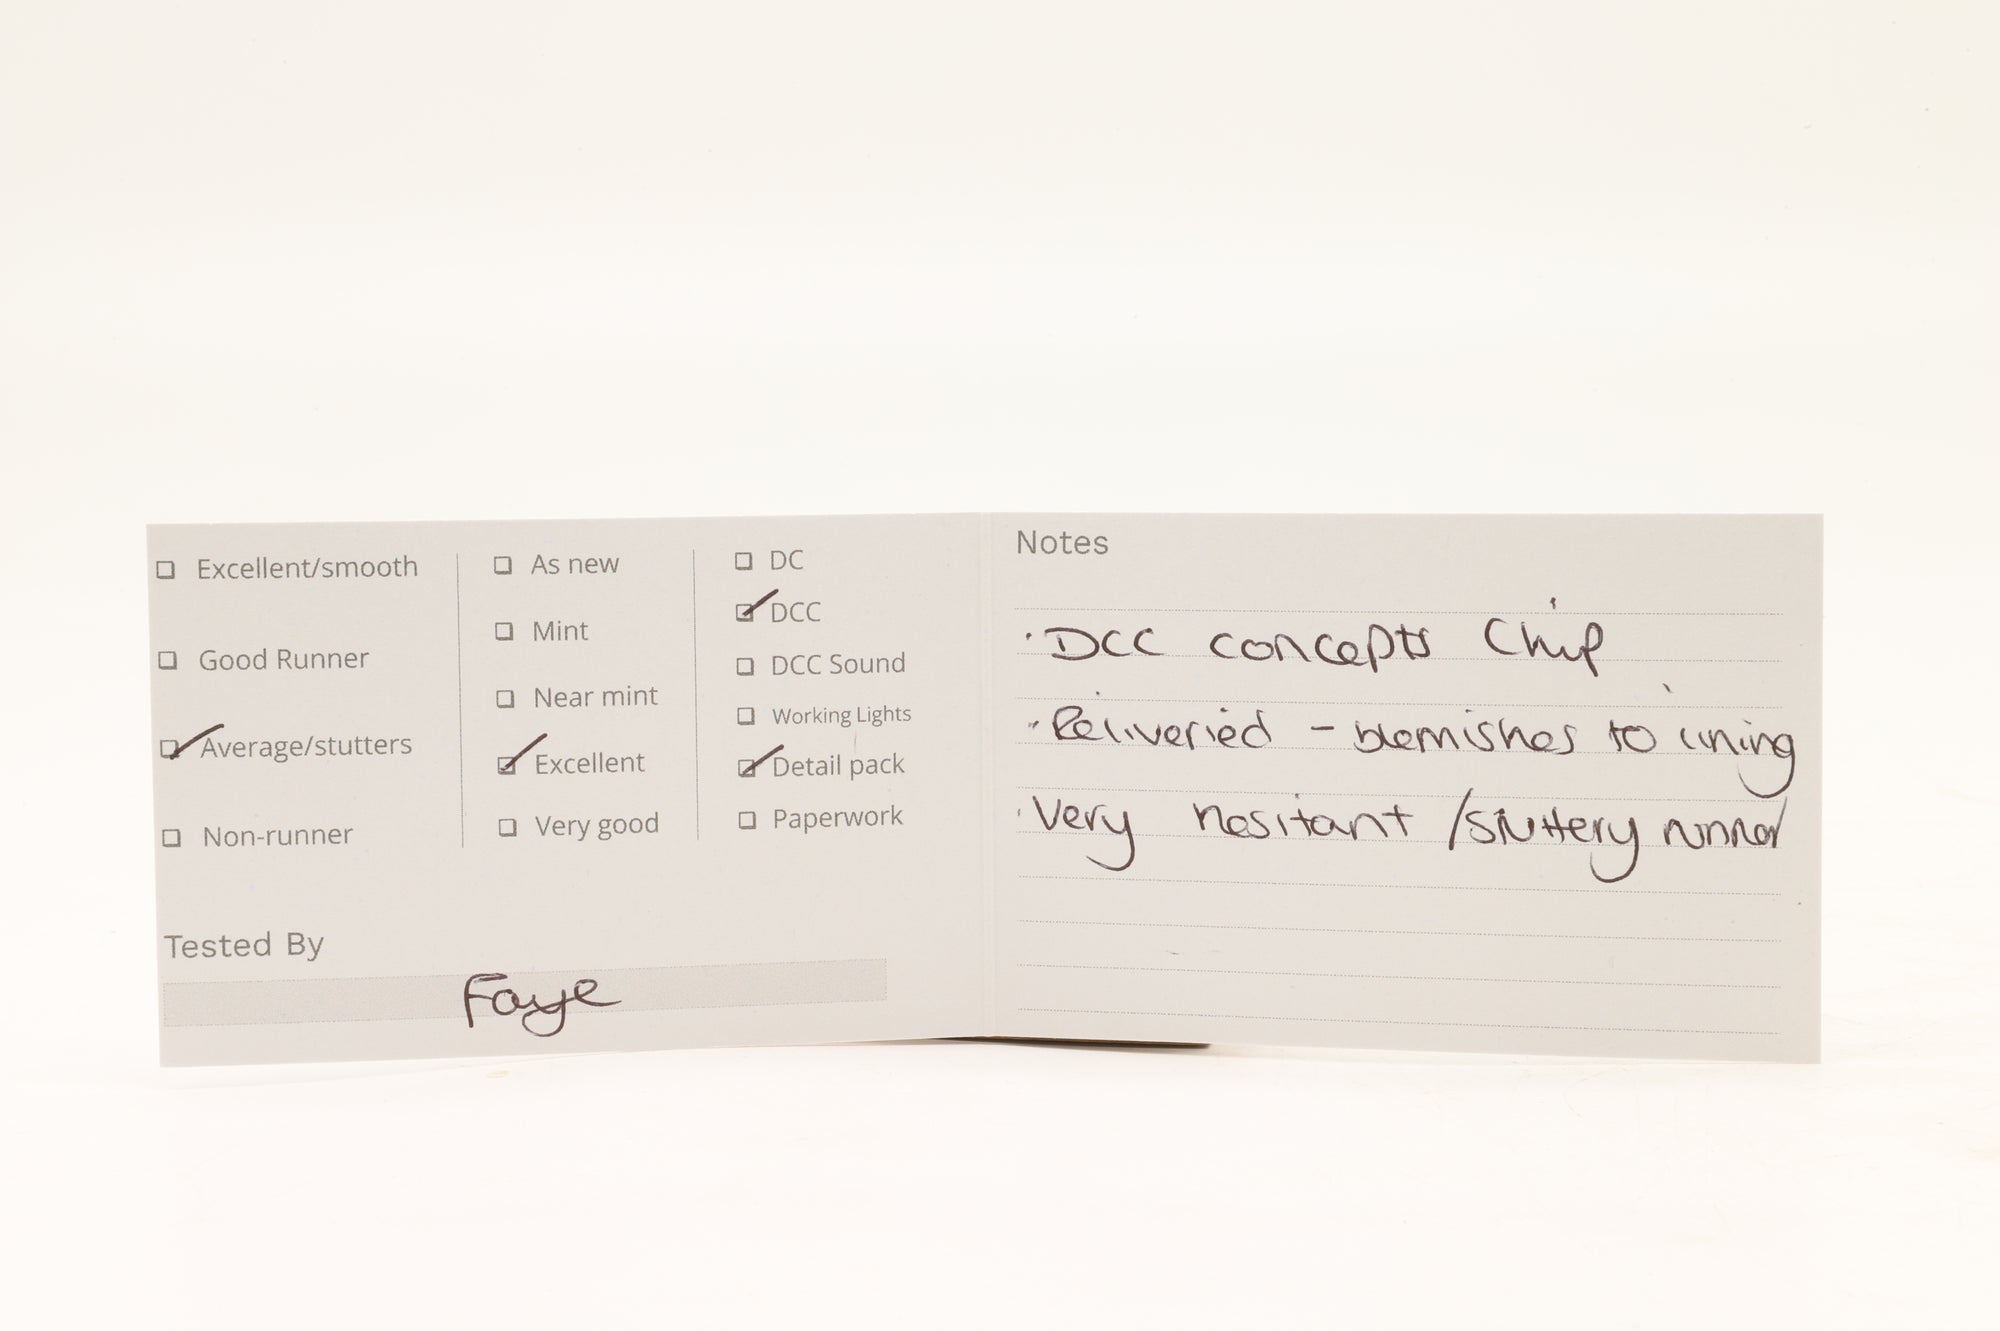 Excellent/smooth
Good Runner
Average/stutters
Non-runner
As new
Mint
Near mint
Excellent
Very good
DC
DCC
DCC Sound
Working Lights
Detail pack
Paperwork
Tested By
Faye
Notes
· DCC concepts Chip
· Reliveried - blemishes to lining
· Very hesitant / stuttery runner